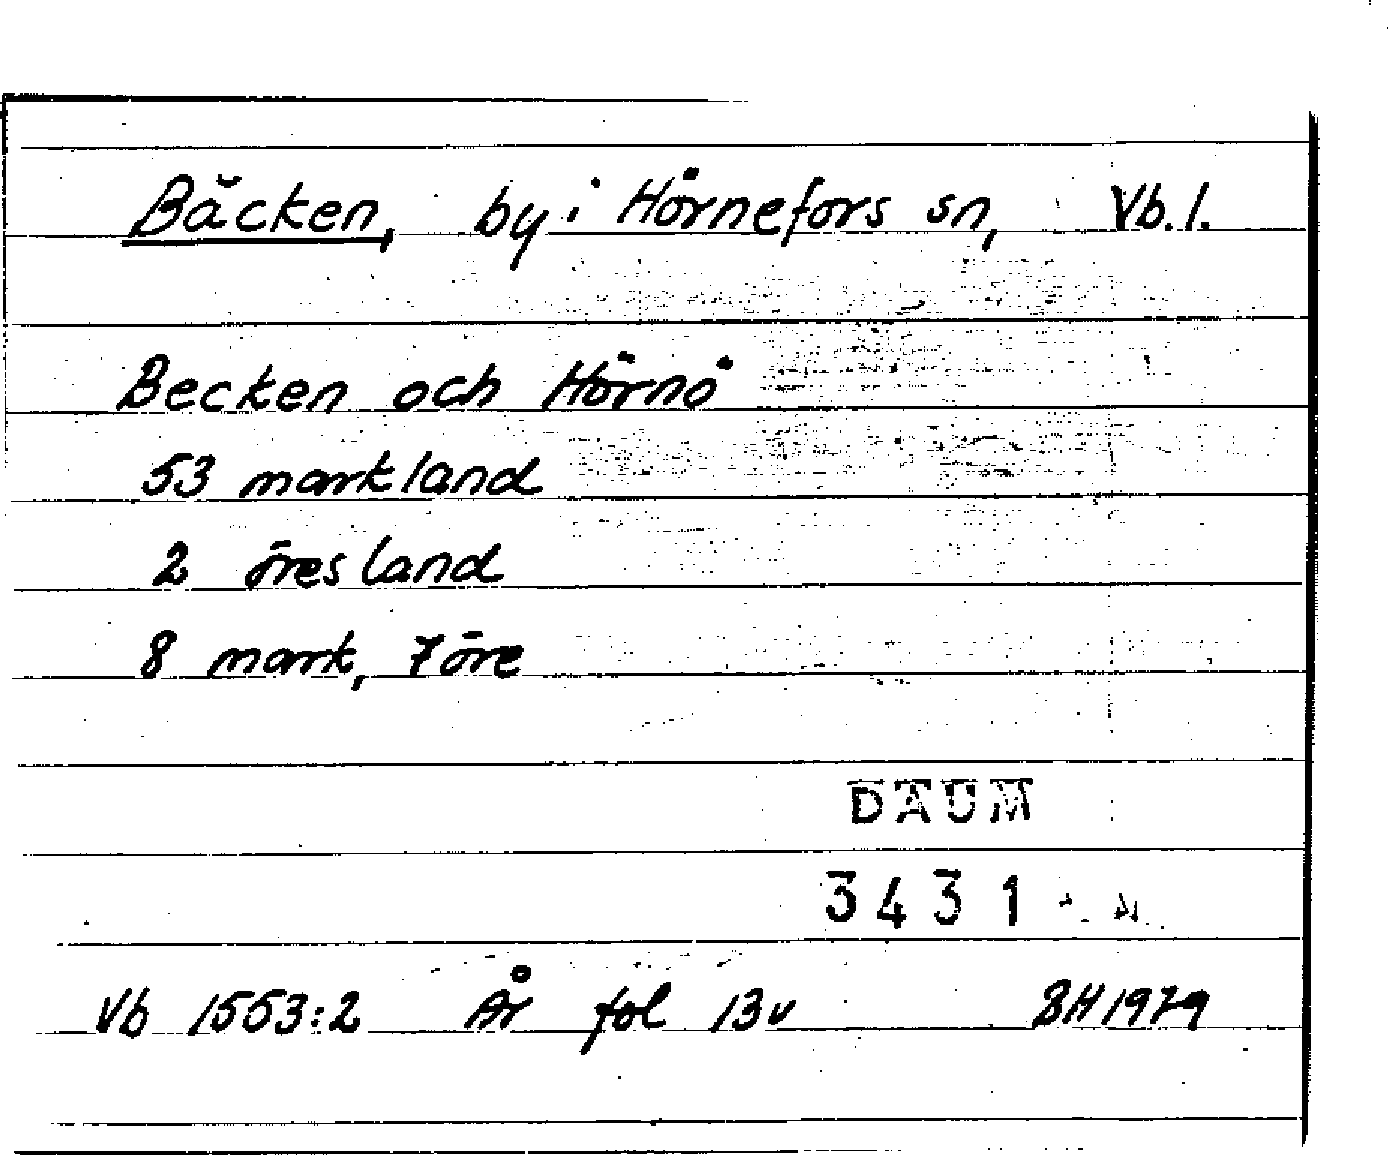 Bäcken, by i Hörnefors sn, Vb. l.
Becken och Hörnö
53 markland
2 öresland
8 mark, 7 öre
DAUM
3431
Vb 1553:2 År fol 13v BH 1979